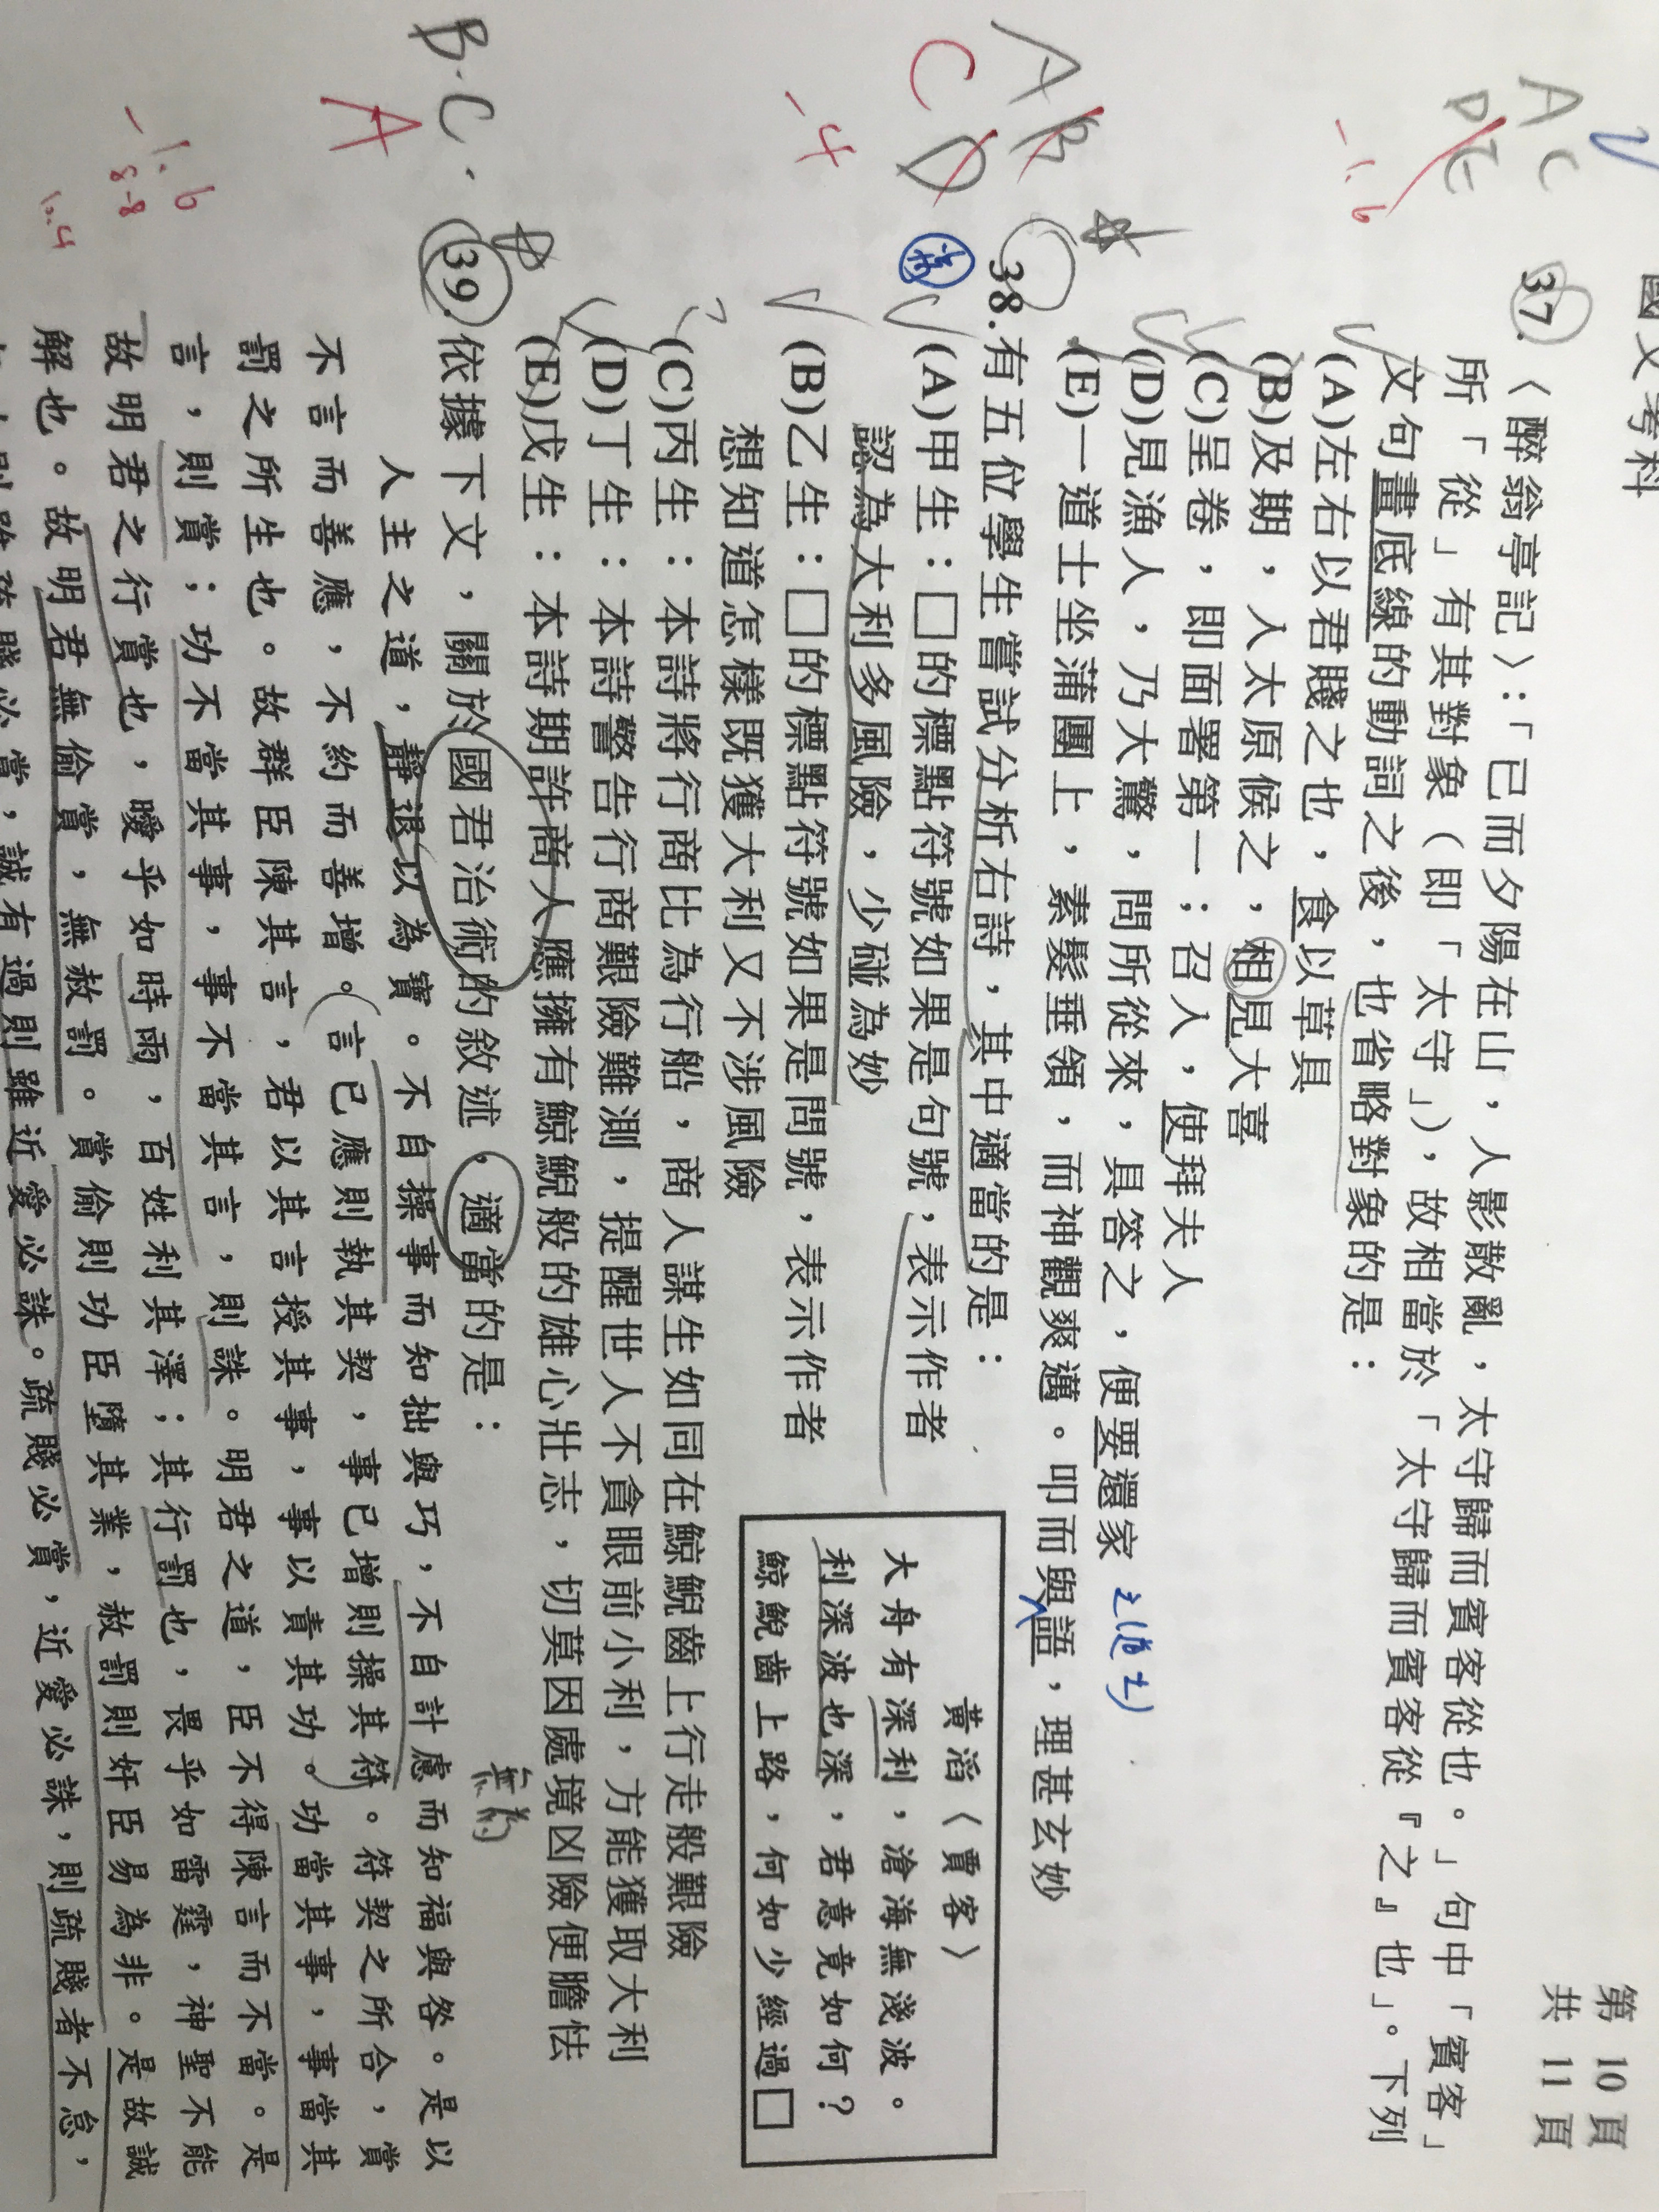 國文考科
第 10 頁
共 11 頁
37.〈醉翁亭記〉：「已而夕陽在山，人影散亂，太守歸而賓客從也。」句中「賓客」
所「從」有其對象（即「太守」），故相當於「太守歸而賓客從『之』也」。下列
文句畫底線的動詞之後，也省略對象的是：
(A)左右以君賤之也，食以草具
(B)及期，入太原候之，相見大喜
(C)呈卷，即面署第一；召入，使拜夫人
(D)見漁人，乃大驚，問所從來，具答之，便要還家
(E)一道士坐蒲團上，素髮垂領，而神觀爽邁。叩而與語，理甚玄妙
之(道士)
A C
D E
-1.6
38.有五位學生嘗試分析右詩，其中適當的是：
(A)甲生：□的標點符號如果是句號，表示作者
認為大利多風險，少碰為妙
(B)乙生：□的標點符號如果是問號，表示作者
想知道怎樣既獲大利又不涉風險
(C)丙生：本詩將行商比為行船，商人謀生如同在鯨鯢齒上行走般艱險
(D)丁生：本詩警告行商艱險難測，提醒世人不貪眼前小利，方能獲取大利
(E)戊生：本詩期許商人應擁有鯨鯢般的雄心壯志，切莫因處境凶險便膽怯
黃滔〈賈客〉
大舟有深利，滄海無淺波。
利深波也深，君意竟如何？
鯨鯢齒上路，何如少經過□
A B
C D
-4
39.依據下文，關於國君治術的敘述，適當的是：
無為
人主之道，靜退以為寶。不自操事而知拙與巧，不自計慮而知福與咎。是以
不言而善應，不約而善增。言已應則執其契，事已增則操其符。符契之所合，賞
罰之所生也。故群臣陳其言，君以其言授其事，事以責其功。功當其事，事當其
言，則賞；功不當其事，事不當其言，則誅。明君之道，臣不得陳言而不當。是
故明君之行賞也，曖乎如時雨，百姓利其澤；其行罰也，畏乎如雷霆，神聖不能
解也。故明君無偷賞，無赦罰。賞偷則功臣墮其業，赦罰則奸臣易為非。是故誠
過則雖近愛必誅。疏賤必賞，近愛必誅，則疏賤者不怠，
B.C.
A
-1.6
8-8
10.4